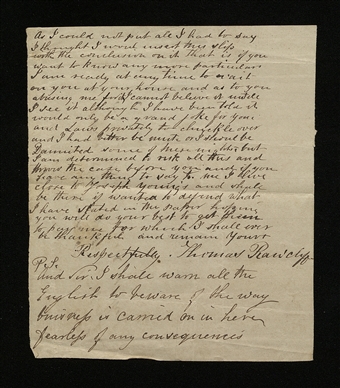 As I could not put all I had to say
I thought I would insert this slip
with the conclusion on it that is if you
want to know any more particulars
I am ready at any time to wait
on you at your house and as to you
abusing me I cannot believe it untill
I see it although I have been told it
would only be a grand joke for you
and Laws privately to chuckle over
and I had better be quite or I should be
Dannited some of these nights but
I am determined to risk all this and
throw the case before you and if you
have any thing to say to me I live
close to Joseph Youngs and shall
be there if wanted to defend what
I have stated in this Paper I hope
you will do your best to get
to for me for which I shall ever
be thankful and remain yours
Respectfully. Thomas Rawcliff
P.S.
and Sir. I shall warn all the
English to beware of the way
buisness is carried on in here
fearless of any consequences